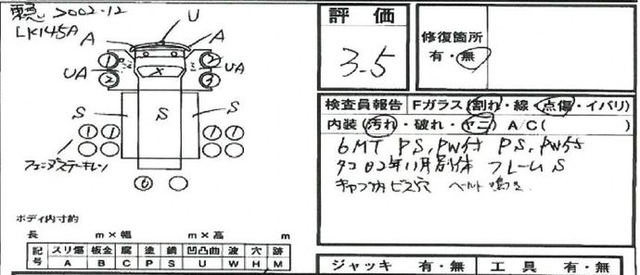 2002-12
LK145A
U
A A
① ②
UA UA
X
S S S
① ① ① ①
⓪
フェンダステーキレツ
ボディ内寸約
長 m×幅 m×高 m
記号 スリ傷 板金 腐 塗 錆 凹凸曲 波 穴 跡
A B C P S U W H M
評価
3.5
修復箇所
有・無
検査員報告 Fガラス(割れ・線・点傷・イバリ)
内装(汚れ・破れ・ヤニ) A/C( )
6MT PS,PW付 PS,PW付
タコ02年11月 フレームS
キャブ内ビス穴 ベルト鳴き
ジャッキ 有・無 工具 有・無